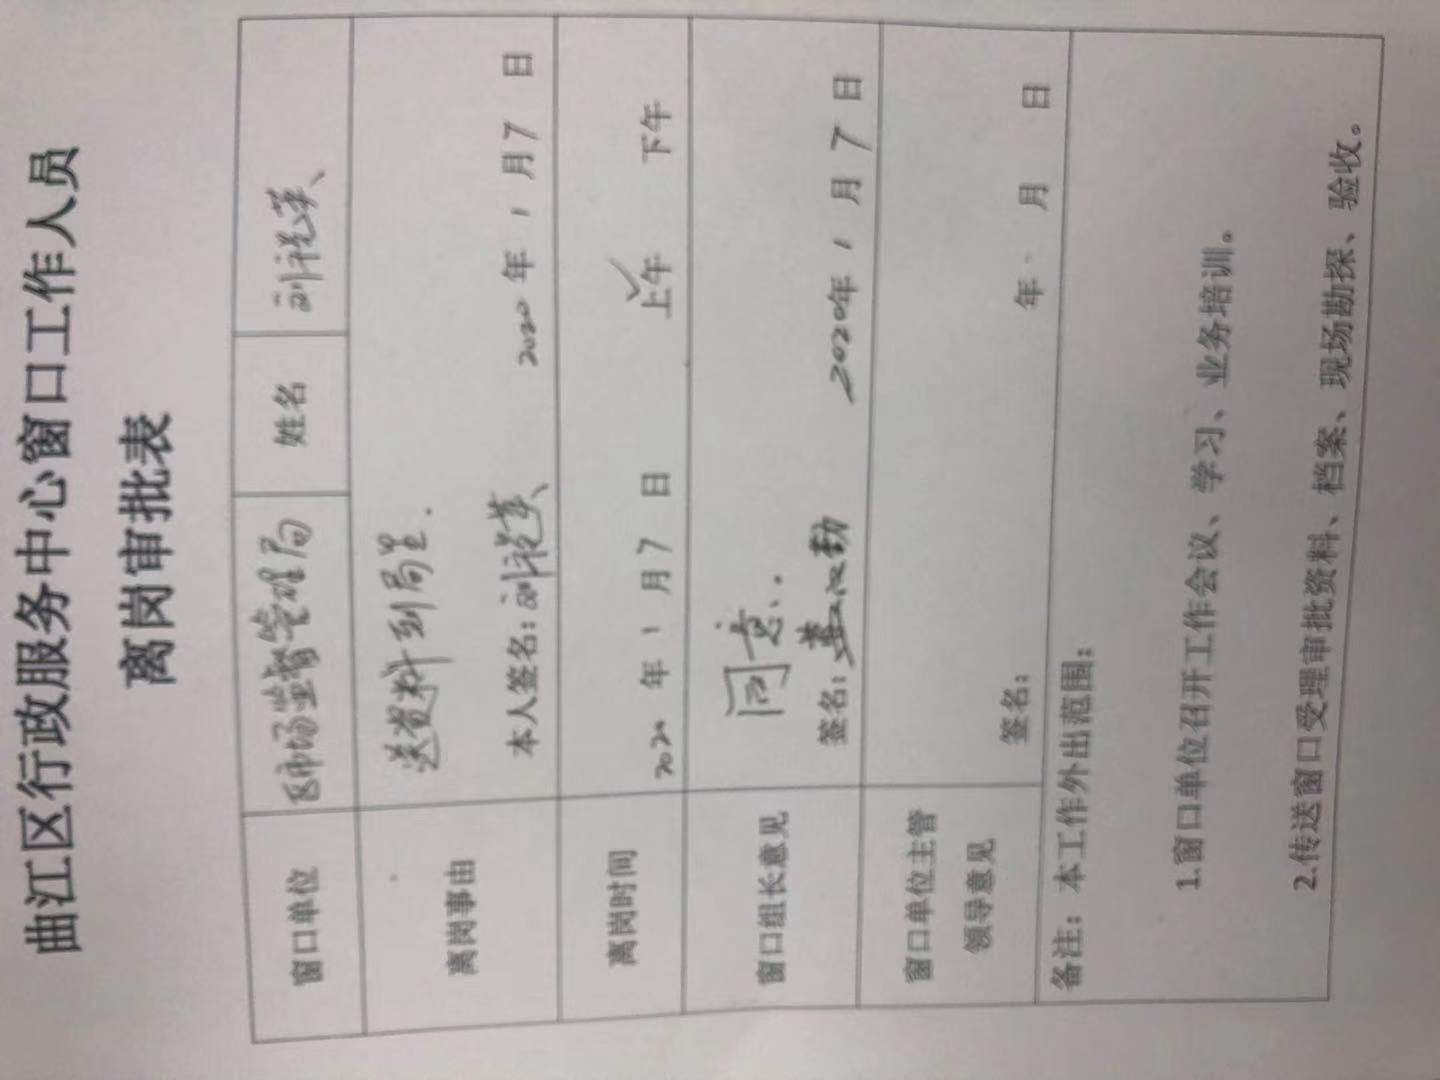 曲江区行政服务中心窗口工作人员
离岗审批表
窗口单位 区市场监督管理局 姓名 刘祝英
离岗事由 送资料到局里.
本人签名：刘祝英 2020年1月7日
离岗时间 2020年1月7日 上午✓ 下午
窗口组长意见 同意.
签名： 2020年1月7日
窗口单位主管
领导意见
签名： 年 月 日
备注：本工作外出范围：
1.窗口单位召开工作会议、学习、业务培训。
2.传送窗口受理审批资料、档案、现场勘探、验收。